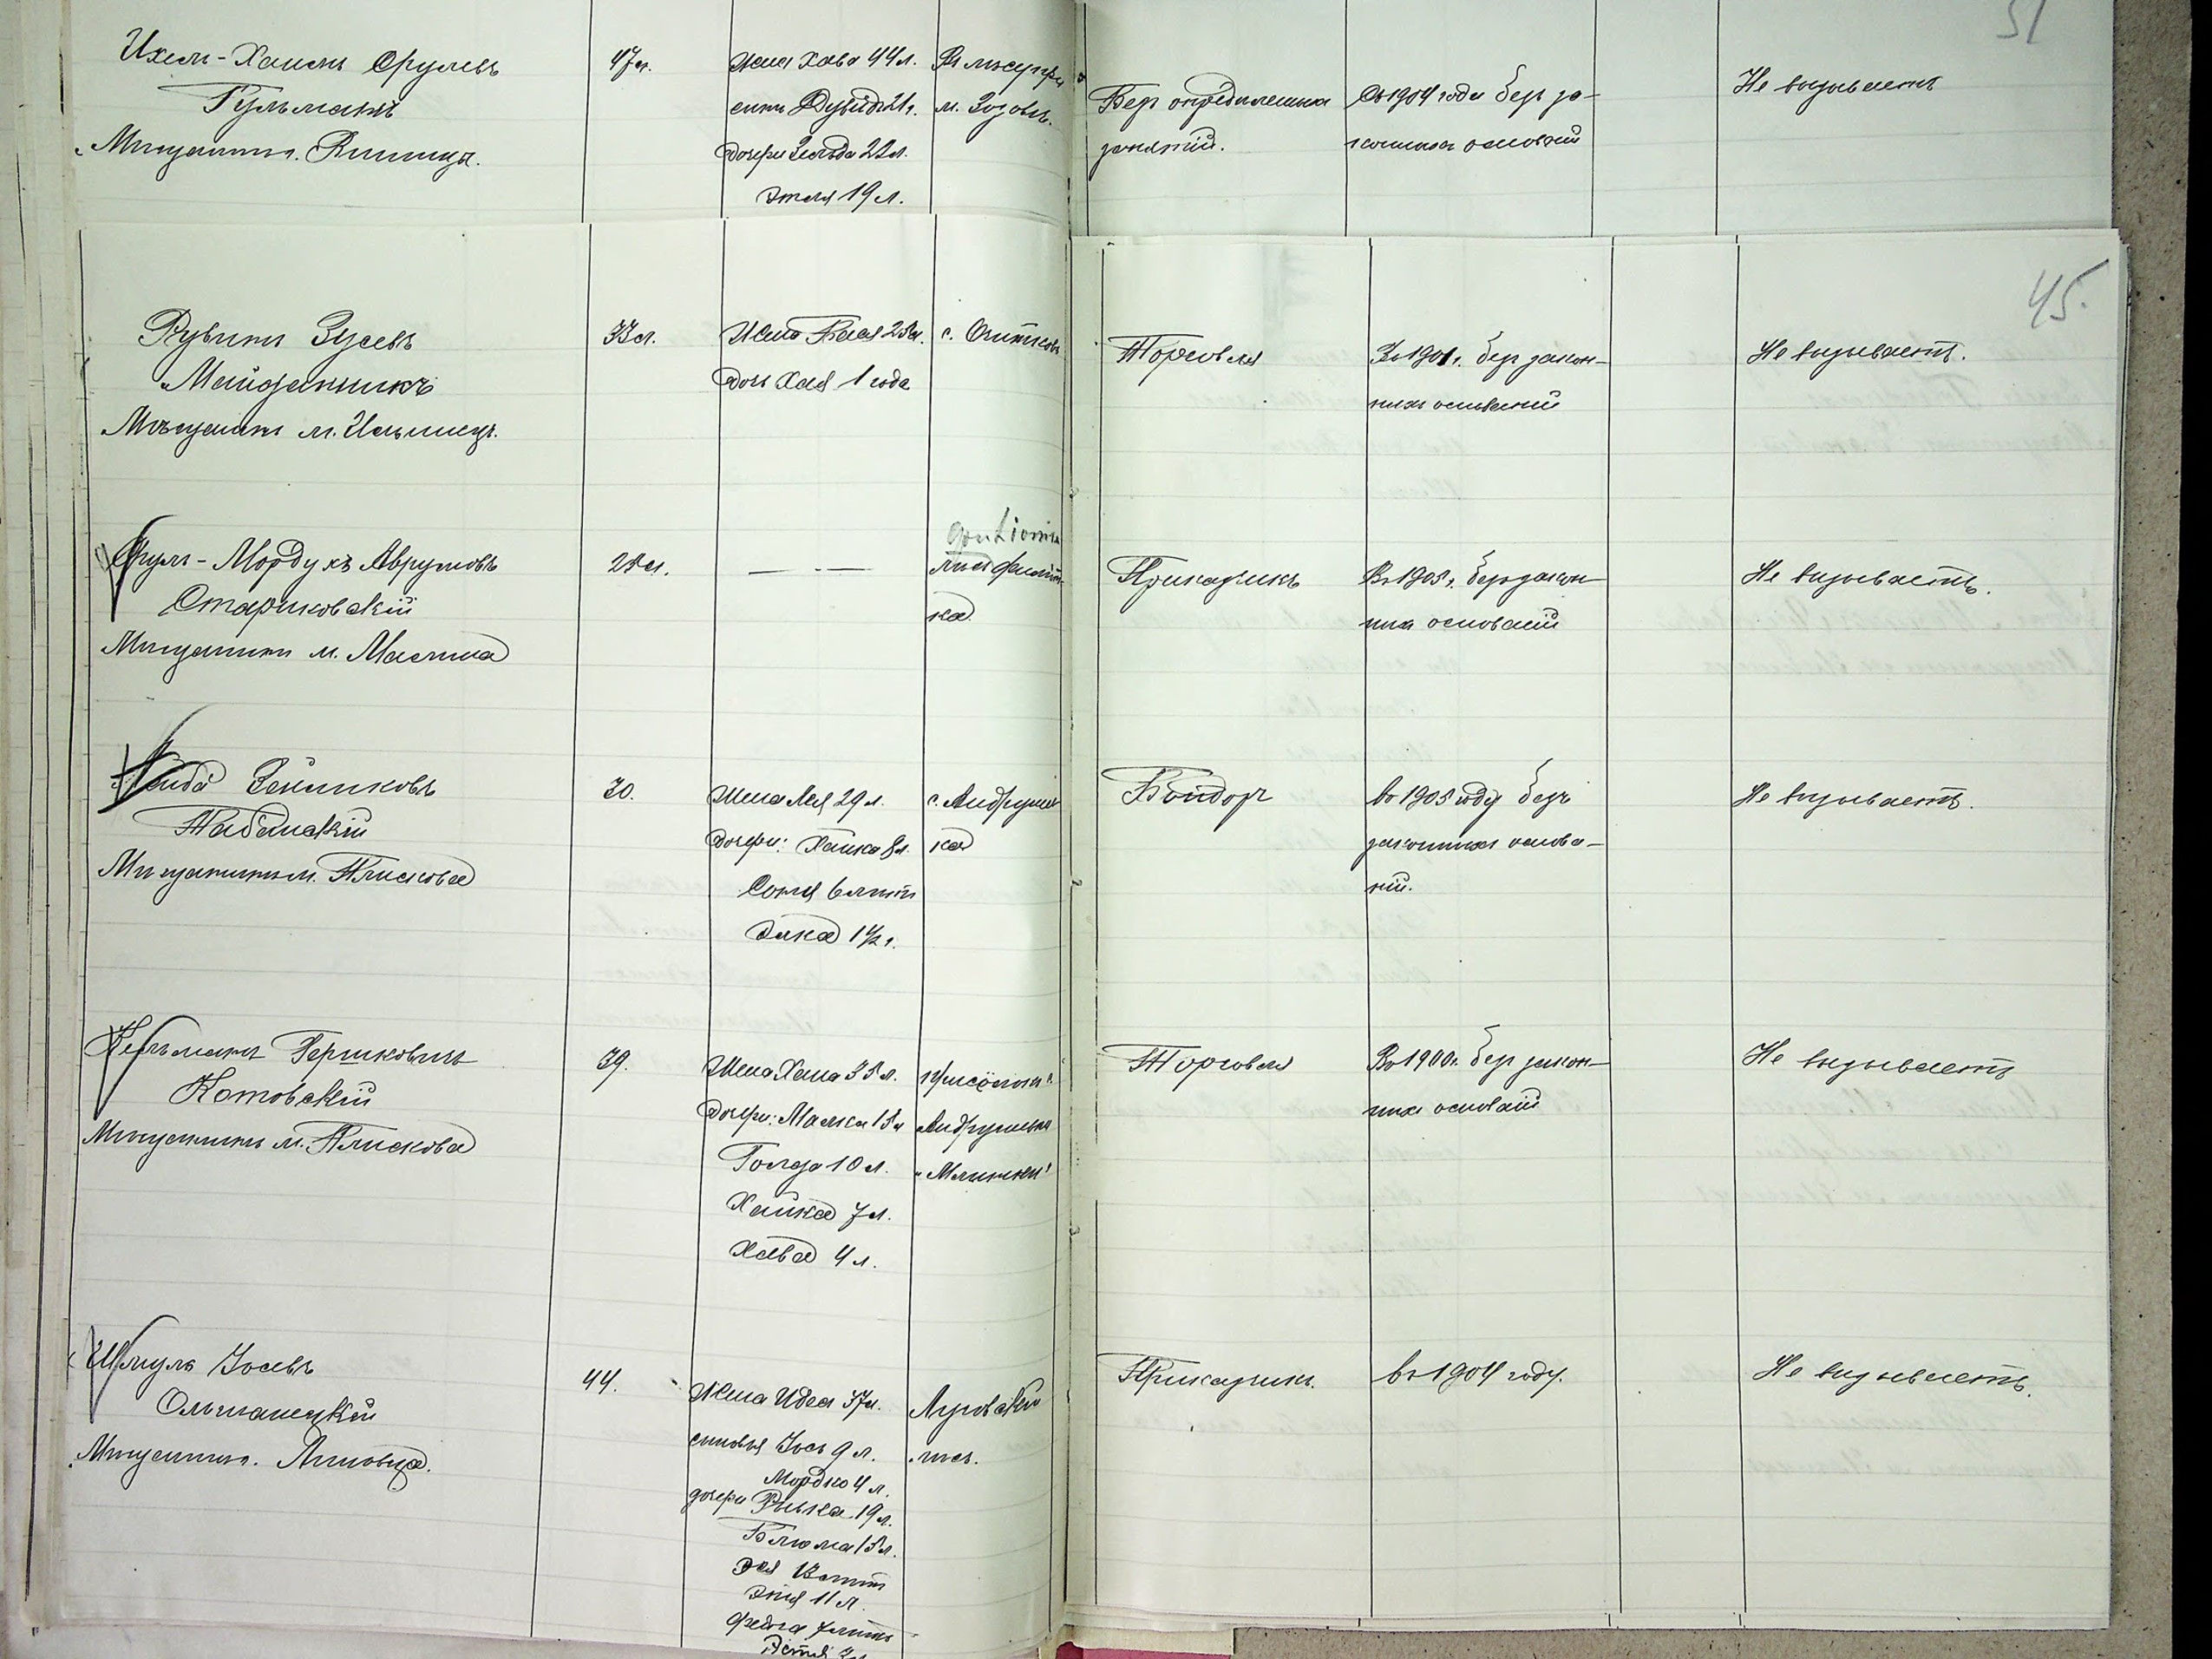 51
Ихель-Хаимъ Срулевъ
Гульманъ
Мѣщанинъ г. Винницы.
47 л.
Жена Хава 44 л.
сынъ Дувидъ 21 г.
дочери Зельда 22 л.
Этля 19 л.
м. Зозовъ.
Безъ опредѣленныхъ
занятій.
Съ 1904 года безъ за-
конныхъ основаній
Не вызываетъ
45.
Рувинъ Зусевъ
Майданникъ
Мѣщанинъ м. Ильинецъ.
33 л.
Жена Бася 25 л.
дочь Хая 1 года
с. Очитковъ
Торговля
Въ 1901 г. безъ закон-
ныхъ основаній
Не вызываетъ.
Сруль-Мордухъ Аврумовъ
Стариковскій
Мѣщанинъ м. Маслина
25 л.
— —
ка
Прикащикъ
Въ 1905 г. безъ закон-
ныхъ основаній
Не вызываетъ.
Зейликовъ
Табанскій
Мѣщанинъ м. Плискова
30.
Жена Лея 29 л.
дочери: Хайка 8 л.
Соня 6 лѣтъ
1 1/2 г.
с. Андруш
ка
Бондорь
въ 1905 году безъ
законныхъ основа-
ній.
Не вызываетъ.
Кельманъ Гершковичъ
Котовскій
Мѣщанинъ м. Плискова
39.
Жена Хана 35 л.
дочери: Малка 15 л
Голда 10 л.
Хайка 7 л.
Хава 4 л.
Андрушевка
Торговля
Въ 1900 г. безъ закон-
ныхъ основаній
Не вызываетъ
Шмуль Іосевъ
Ольшанецкій
Мѣщанинъ г. Липовца.
44.
Жена Идеса 37 л.
сыновья Іось 9 л.
Мордко 4 л.
дочери Рывка 19 л.
Блюма 15 л.
Эня 11 л.
Фейга 7 лѣтъ
Прикащикъ.
въ 1904 году.
Не вызываетъ.